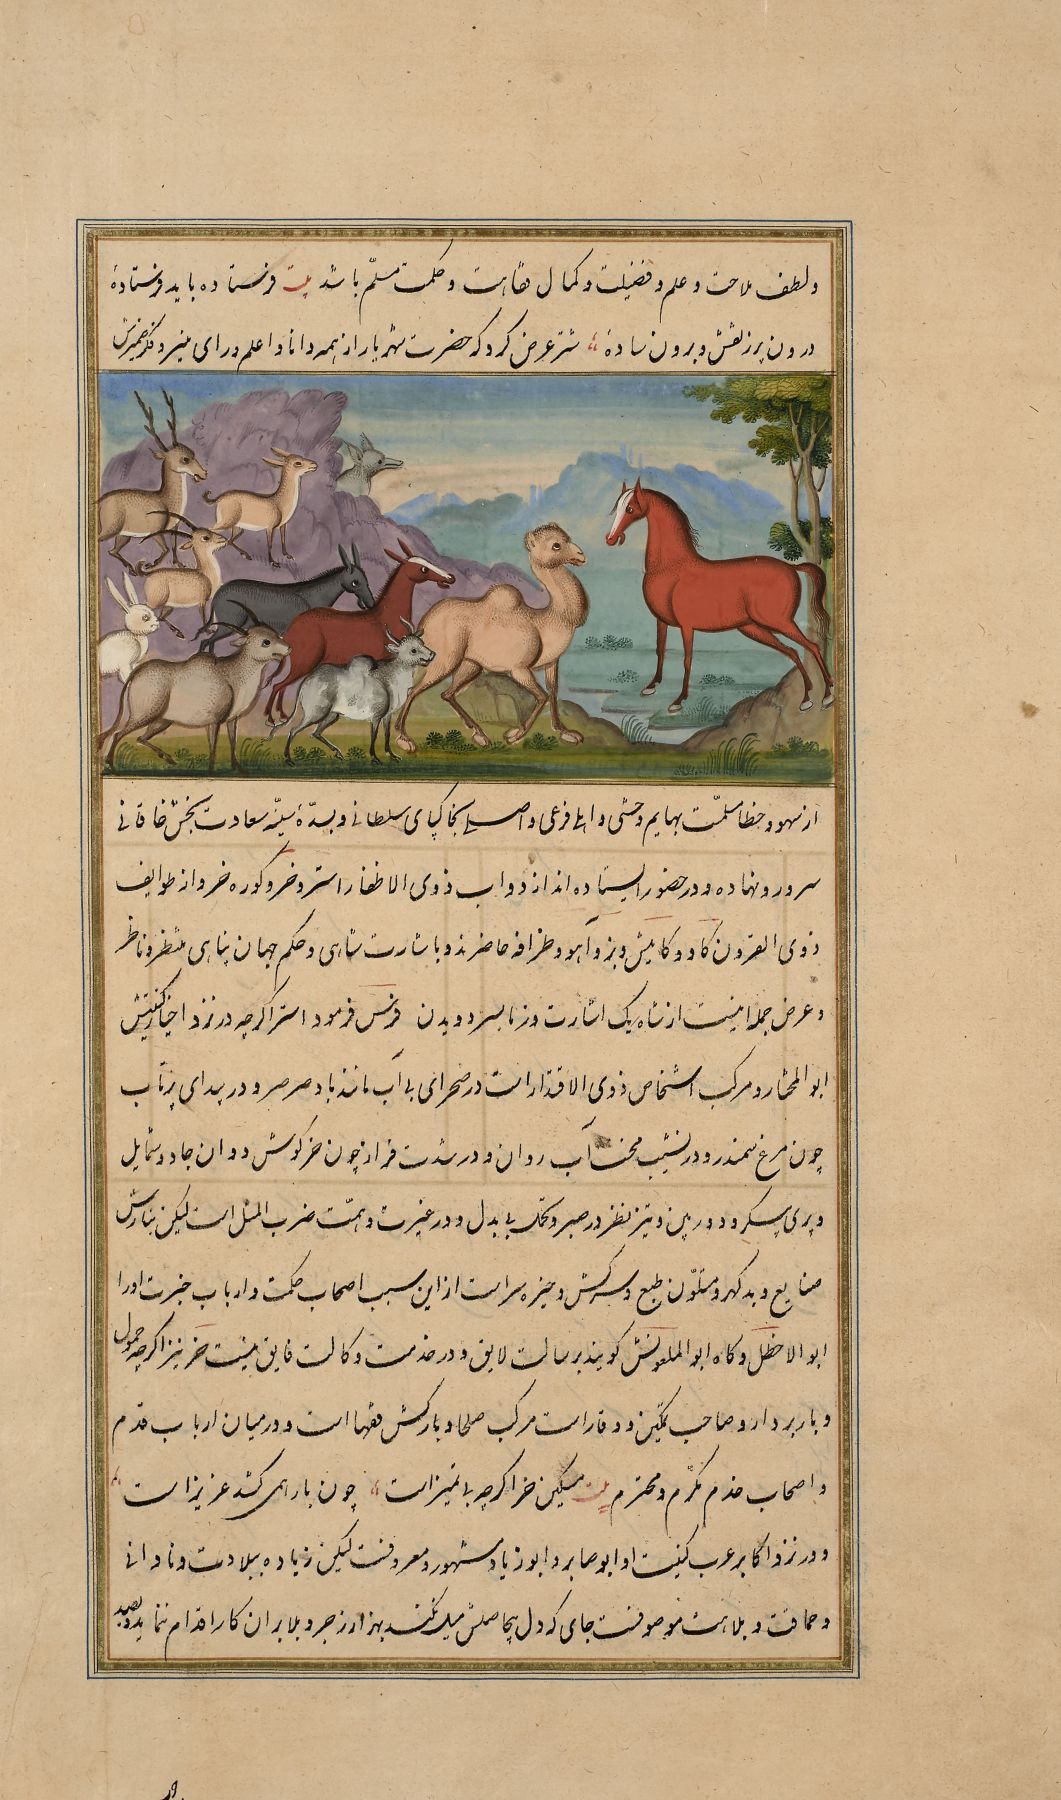 و لطف ملاحت و علم و فضیلت و کمال فقاهت و حکمت مسلّم باشد بیت فرستاده باید فرستادهٔ
درون پر ز نقش و برون سادهٔ شتر عرض کرد که حضرت شهریار از همه دانا و اعلم و رای منیر و فکر ضمیرش
از سهو و خطا مسلمّت بهایم وحشی و اهلی فرعی و اصلی بخاکپای سلطانی و بسدّهٔ سنیّه سعادت بخش خاقانی
سر و رو نهاده و در حضور ایستاده اند از دواب ذوی الاظفار استر و خر و کوره خر و از طوایف
ذوی القرون کاو و کامیش و بز و آهو و ظرافه حاضرند و باشارت شاهی و حکم جهان پناهی منتظر و ناظر
و عرض جمله اینست از شاه یک اشارت وز ما بسر دویدن فرس فرمود استر اکرچه در نزد اخیار کنیتش
ابو المختار و مرکب اشخاص ذوی الاقتدار است در صحرای بی آب مانند باد صرصر و در بیدای پر تاب
چون مرغ سمندر و در نشیب آب روان و در شدت فراز چون خرکوش دوان جادو شمایل
و پری پیکر و دوربین و تیز نظر در صبر و تحمّل بی بدل و در غیرت و همّت ضرب المثل است لیکن بنا برش
ضایع و بد کهر و متلوّن طبع و سرکش و خیره سر است از این سبب اصحاب حکمت و ارباب خبرت اورا
ابو الاخطل و کاه ابو الملعونش کویند برسالت لایق و در خدمت وکالت فایق نیست خر نیز اکرچه حمول
و بار بردار و صاحب تمکین و وقار است مرکب صلحا و بارکش فقها است و در میان ارباب قدم
و اصحاب خدم مکرّم و محترم بیت مسکین خر اکرچه بی تمیز است چون بار همی کشد عزیز است
و در نزد اکابر عرب کنیت او ابو صابر و ابو زیاد مشهور و معروفست لیکن زیاده ببلادت و نادانی
و حماقت و بلاهت موصوفست جای که دل بیحاصلش میل نکند بهزار زجر و بلا بر ان کار اقدام ننماید و بصد